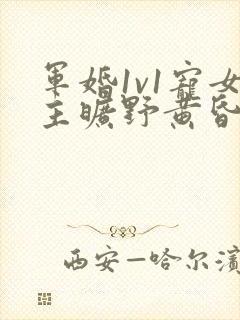 軍婚1v1寵女
主曠野黃昏
西安—哈尔濱